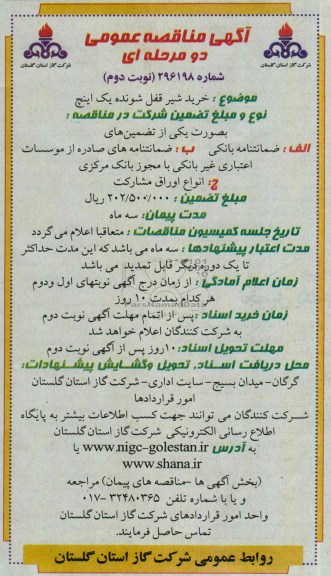 آگهی مناقصه عمومی
دو مرحله ای
شرکت گاز استان گلستان
شرکت گاز استان گلستان
شماره ۲۹۶۱۹۸ (نوبت دوم)
موضوع : خرید شیر قفل شونده یک اینچ
نوع و مبلغ تضمین شرکت در مناقصه :
بصورت یکی از تضمین‌های
الف : ضمانتنامه بانکی ب : ضمانتنامه های صادره از موسسات
اعتباری غیر بانکی با مجوز بانک مرکزی
ج: انواع اوراق مشارکت
مبلغ تضمین : ۲۰۲/۵۰۰/۰۰۰ ریال
مدت پیمان: سه ماه
تاریخ جلسه کمیسیون مناقصات : متعاقبا اعلام می گردد
مدت اعتبار پیشنهادها : سه ماه می باشد که این مدت حداکثر
تا یک دوره دیگر قابل تمدید می باشد
زمان اعلام آمادگی : از زمان درج آگهی نوبتهای اول ودوم
هر کدام بمدت ۱۰ روز
زمان خرید اسناد : پس از اتمام مهلت آگهی نوبت دوم
به شرکت کنندگان اعلام خواهد شد
مهلت تحویل اسناد: ۱۰روز پس از آگهی نوبت دوم
محل دریافت اسناد، تحویل وگشایش پیشنهادات:
گرگان- میدان بسیج- سایت اداری- شرکت گاز استان گلستان
امور قراردادها
شرکت کنندگان می توانند جهت کسب اطلاعات بیشتر به پایگاه
اطلاع رسانی الکترونیکی شرکت گاز استان گلستان
به آدرس www.nigc-golestan.ir یا
www.shana.ir
(بخش آگهی ها -مناقصه های پیمان) مراجعه
و یا با شماره تلفن ۳۲۴۸۰۳۶۵ -۰۱۷
واحد امور قراردادهای شرکت گاز استان گلستان
تماس حاصل فرمایند.
روابط عمومی شرکت گاز استان گلستان